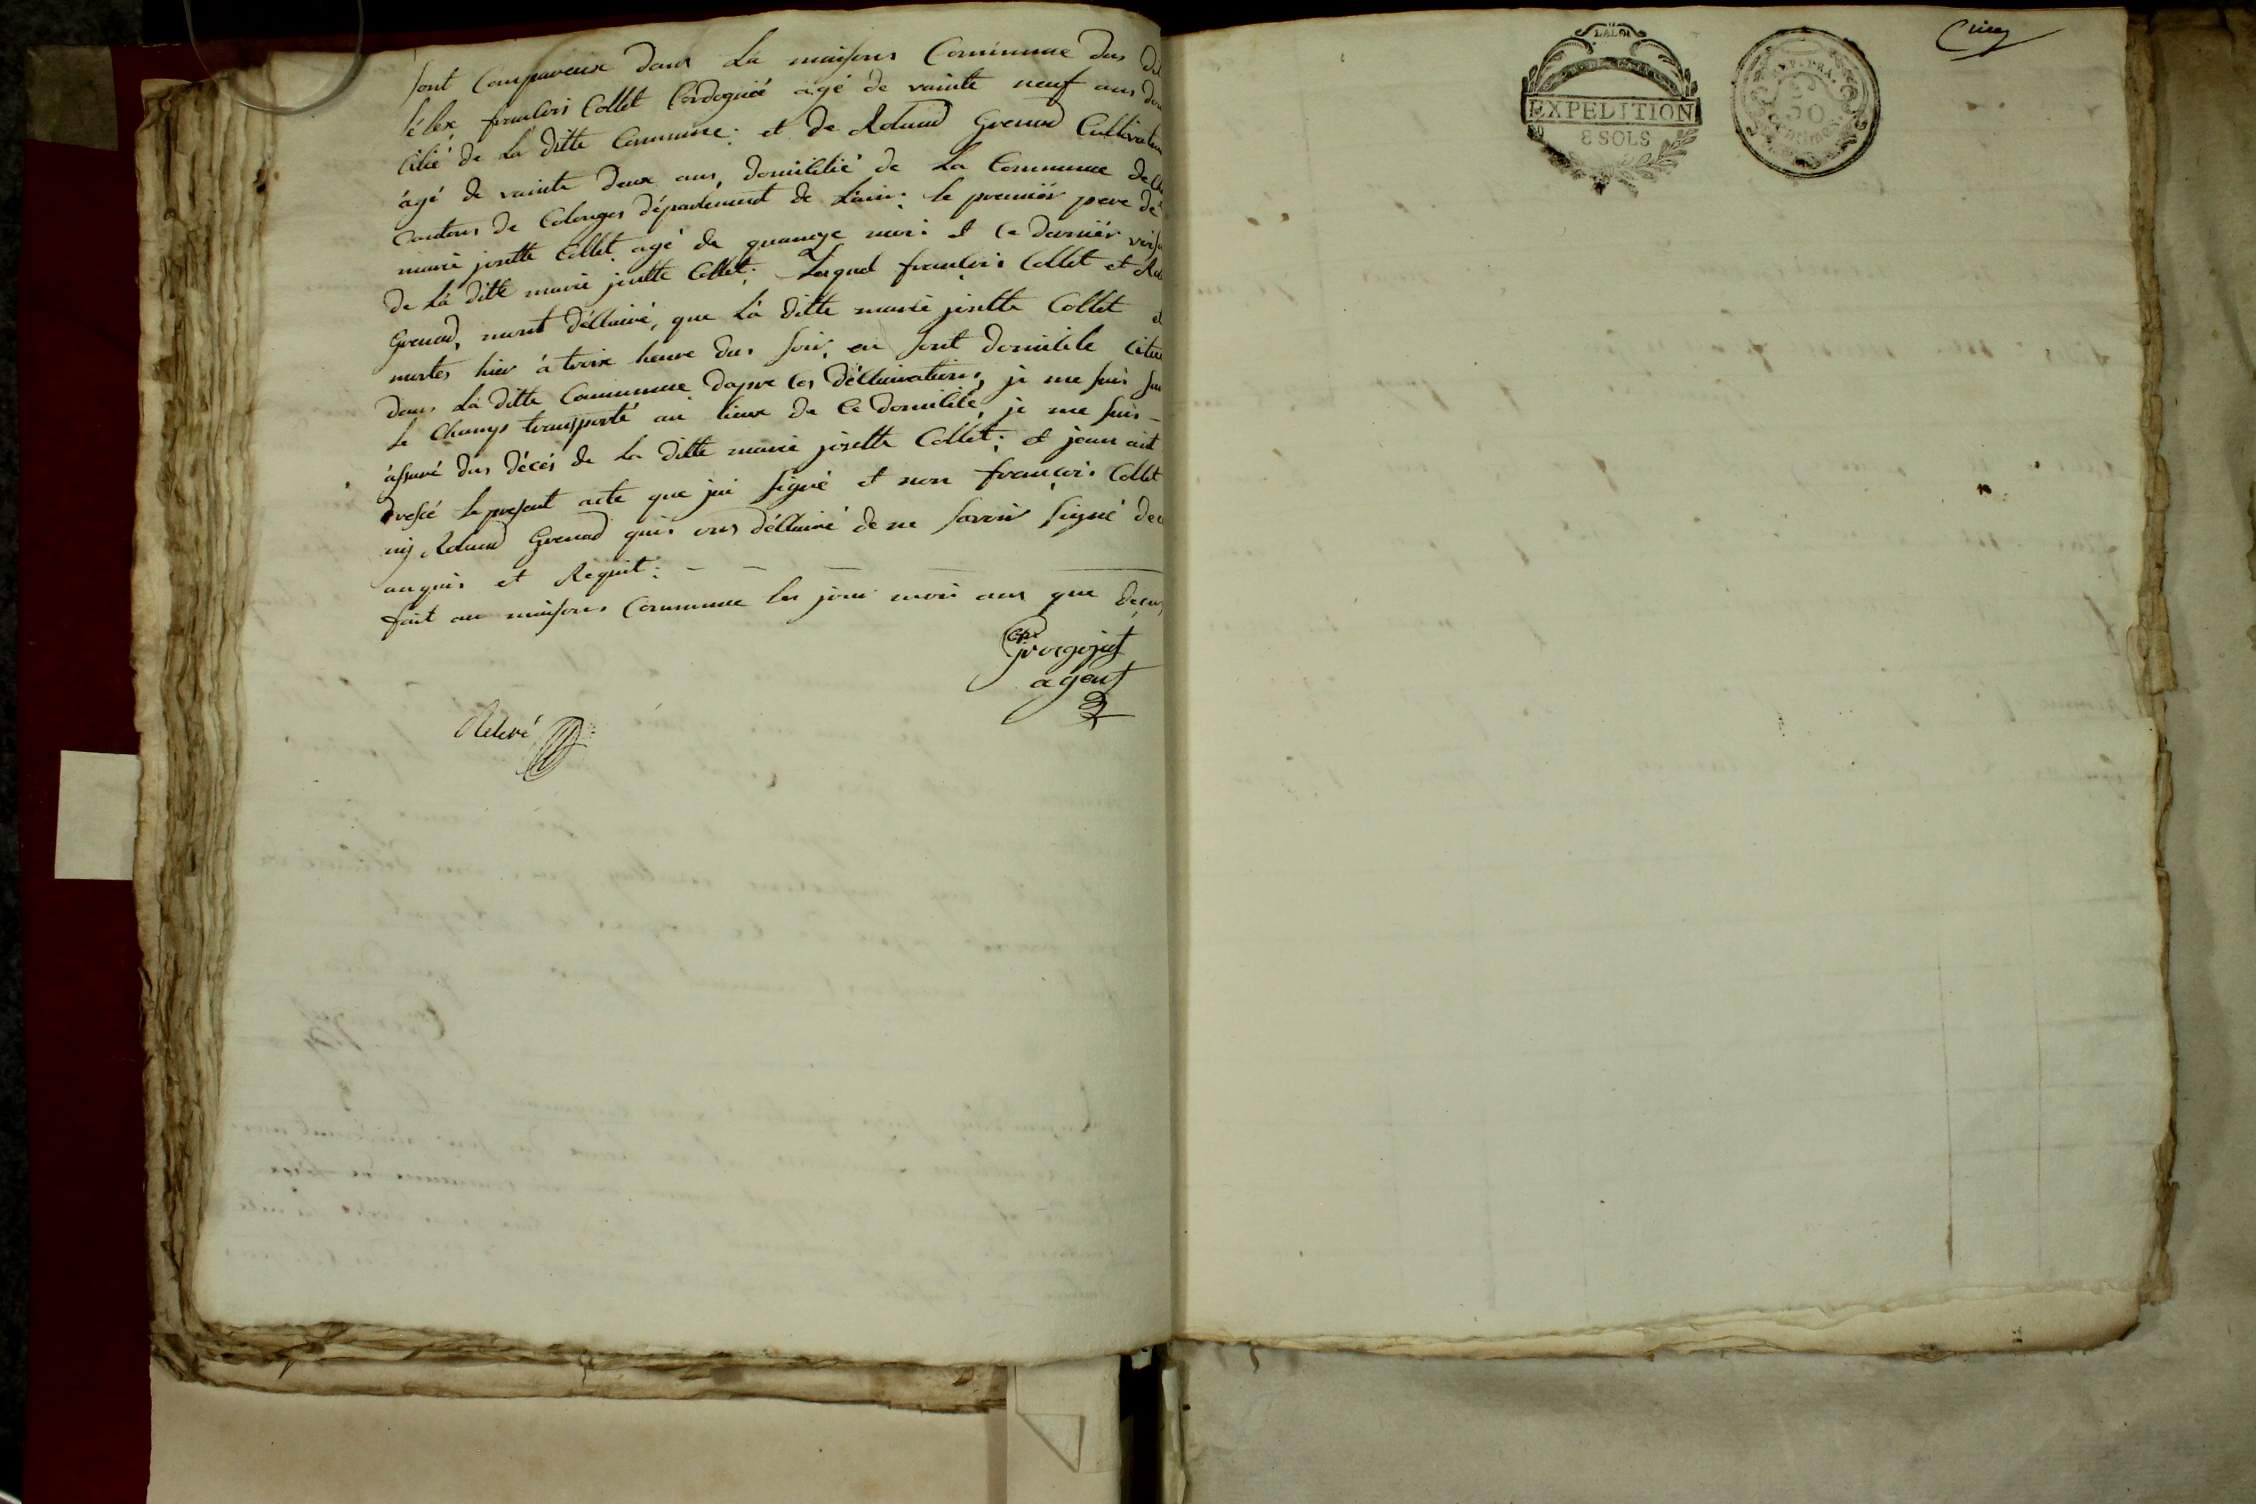 sont Compareux dans La maisons Commune dus dit
félix francois Collet Cordognié agé de vainte neuf ans dom
cilié de La ditte Commune; et de Roland Grenad Cultivateur
âgé de vainte deux ans, domicilié de La Commune de
Cantons de Colonges département de L'ain; le premiér pere dé
marie josette Collet agé de quaneze moi; et le derniér voisi
de Là ditte marie josette Collet; Lesquel francois Collet et Rol
Grenad, mont déllairé, que Là ditte marie josette Collet et
mortes hier á troix heure dus soir, en sont domicile citué
dans Là ditte Commune dapre les déllairations, je me suis sur
le Champs transporté au lieux de Ce domicile, je me suis -
assuré dus décés de La ditte marie josette Collet; et jean ait
dressé le present acte que jai signé et non francois Collet
nij Roland Grenad quis ons déllairé de ne savoir signé de ce
anquis et Requit; - - - -
fait au maisons Commune les jour mois ans que desus
agent
Relevé
LA LOI
EXPEDITION
8 SOLS
REP. FRA.
50
Centimes